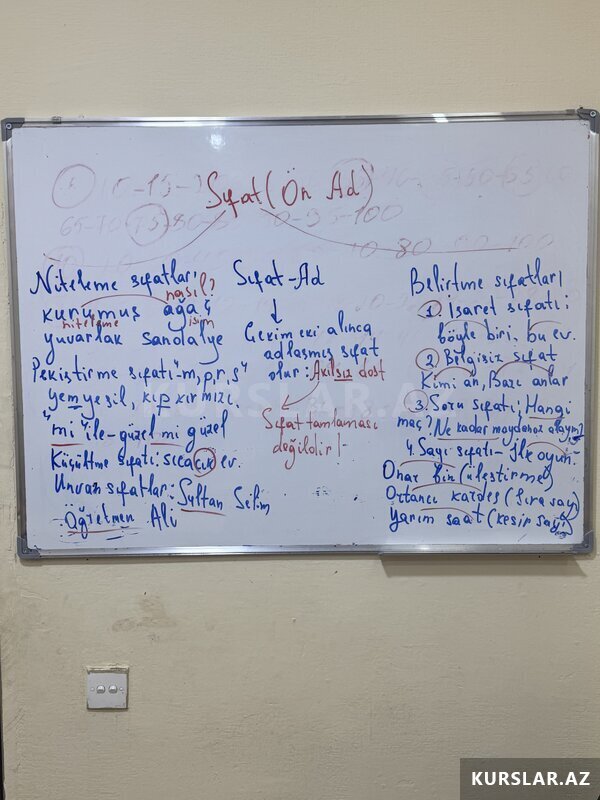 Sıfat (Ön Ad)
Niteleme sıfatları
nasıl?
kurumuş ağaç
niteleme isim
yuvarlak sandalye
Pekiştirme sıfatı "m, p, r, s"
yemyeşil, kıpkırmızı,
"mi" ile - güzel mi güzel
Küçültme sıfatı: sıcacık ev.
Unvan sıfatlar: Sultan Selim
Öğretmen Ali
Sıfat-Ad
↓
Çekim eki alınca
adlaşmış sıfat
olur: Akılsız dost
Sıfat tamlaması
değildir!
Belirtme sıfatları
1. İşaret sıfatı:
böyle biri, bu ev.
2. Bilgisiz sıfat
Kimi an, Bazı anlar
3. Soru sıfatı; Hangi
maç? Ne kadar maydanoz alayım?
4. Sayı sıfatı - İlk oyun.
Onar bin (üleştirme)
Ortancı kardeş (sıra sayı)
Yarım saat (kesir sayı)
KURSLAR.AZ
KURSLAR.AZ